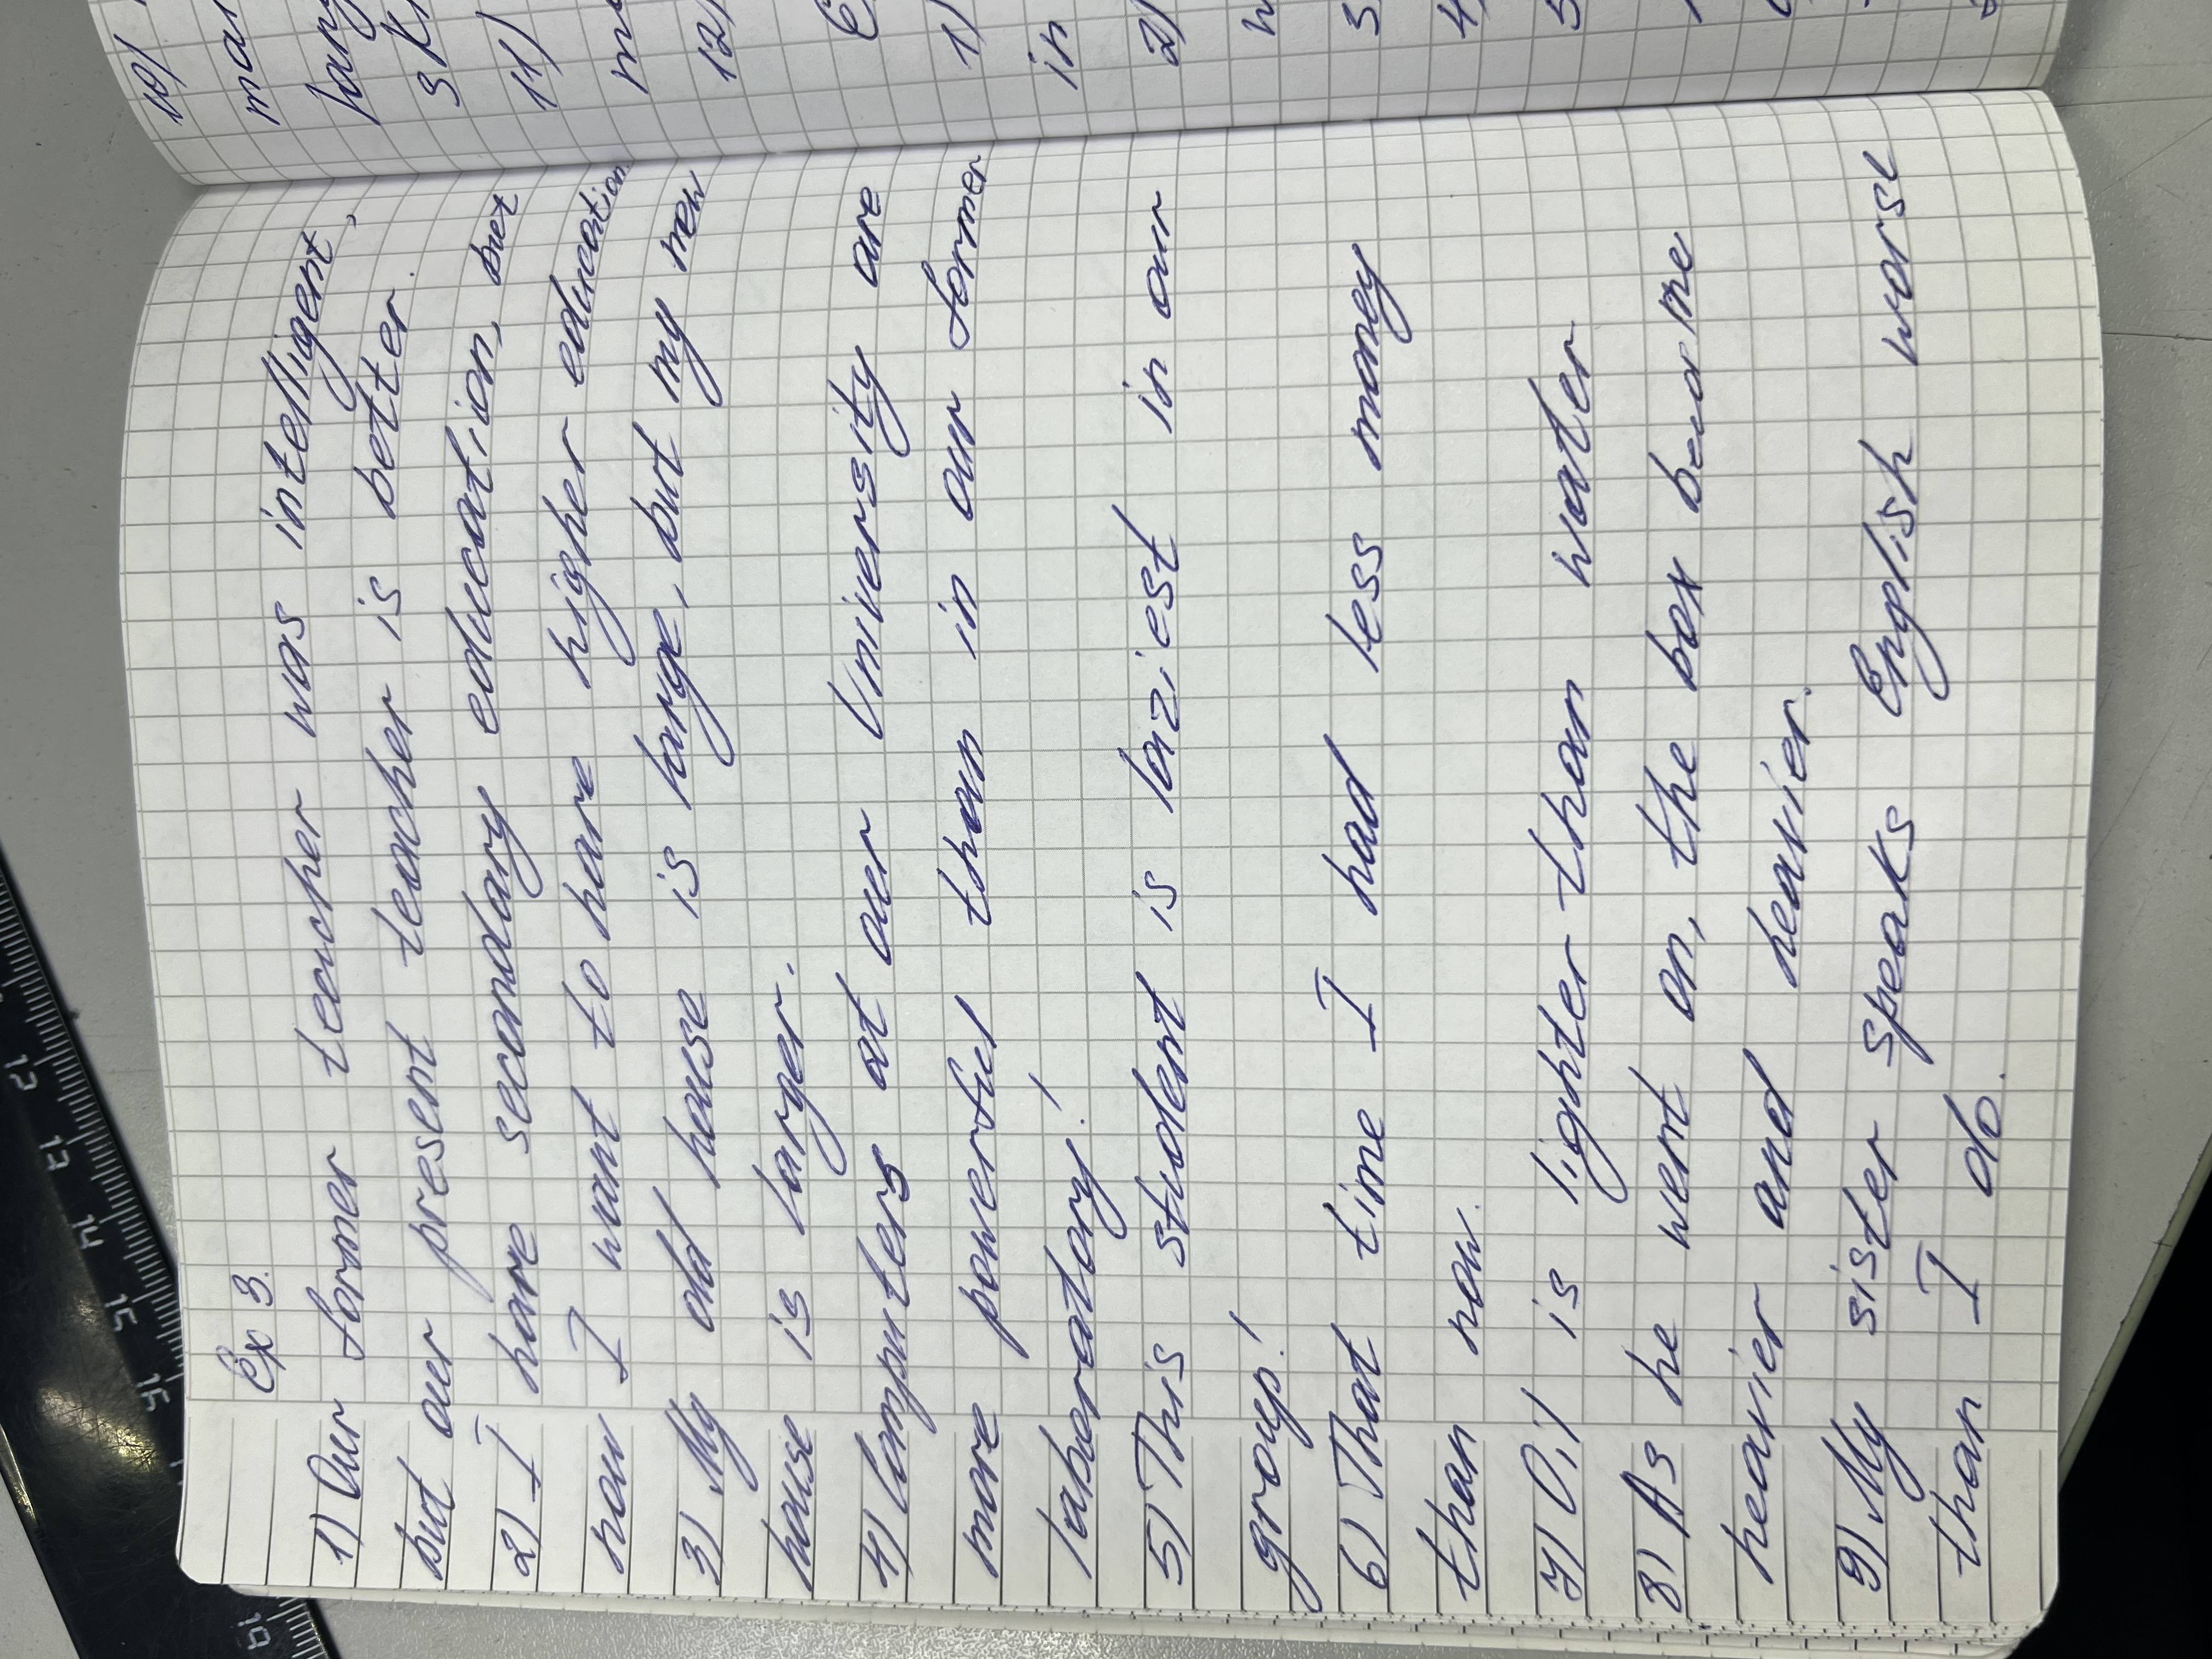 Ex 3.
1) Our former teacher was intelligent,
but our present teacher is better.
2) I have secondary education, but
now I want to have higher education
3) My old house is large, but my new
house is larger.
4) Computers at our University are
more powerful than in our former
laboratory!
5) This student is laziest in our
group!
6) That time I had less money
than now.
7) Oil is lighter than water
8) As he went on, the box became
heavier and heavier.
9) My sister speaks English worse
than I do.
10)
11)
12)
1)
in
2)